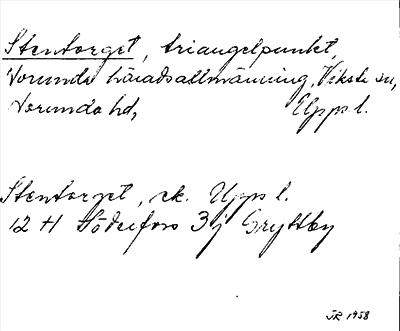 Stentorget, triangelpunkt,
Norunda häradsallmänning, Viksta sn,
Norunda hd, Uppsl.
Stentorget, ek. Uppsl.
12 H Söderfors 3 j Gryttby
JR 1958